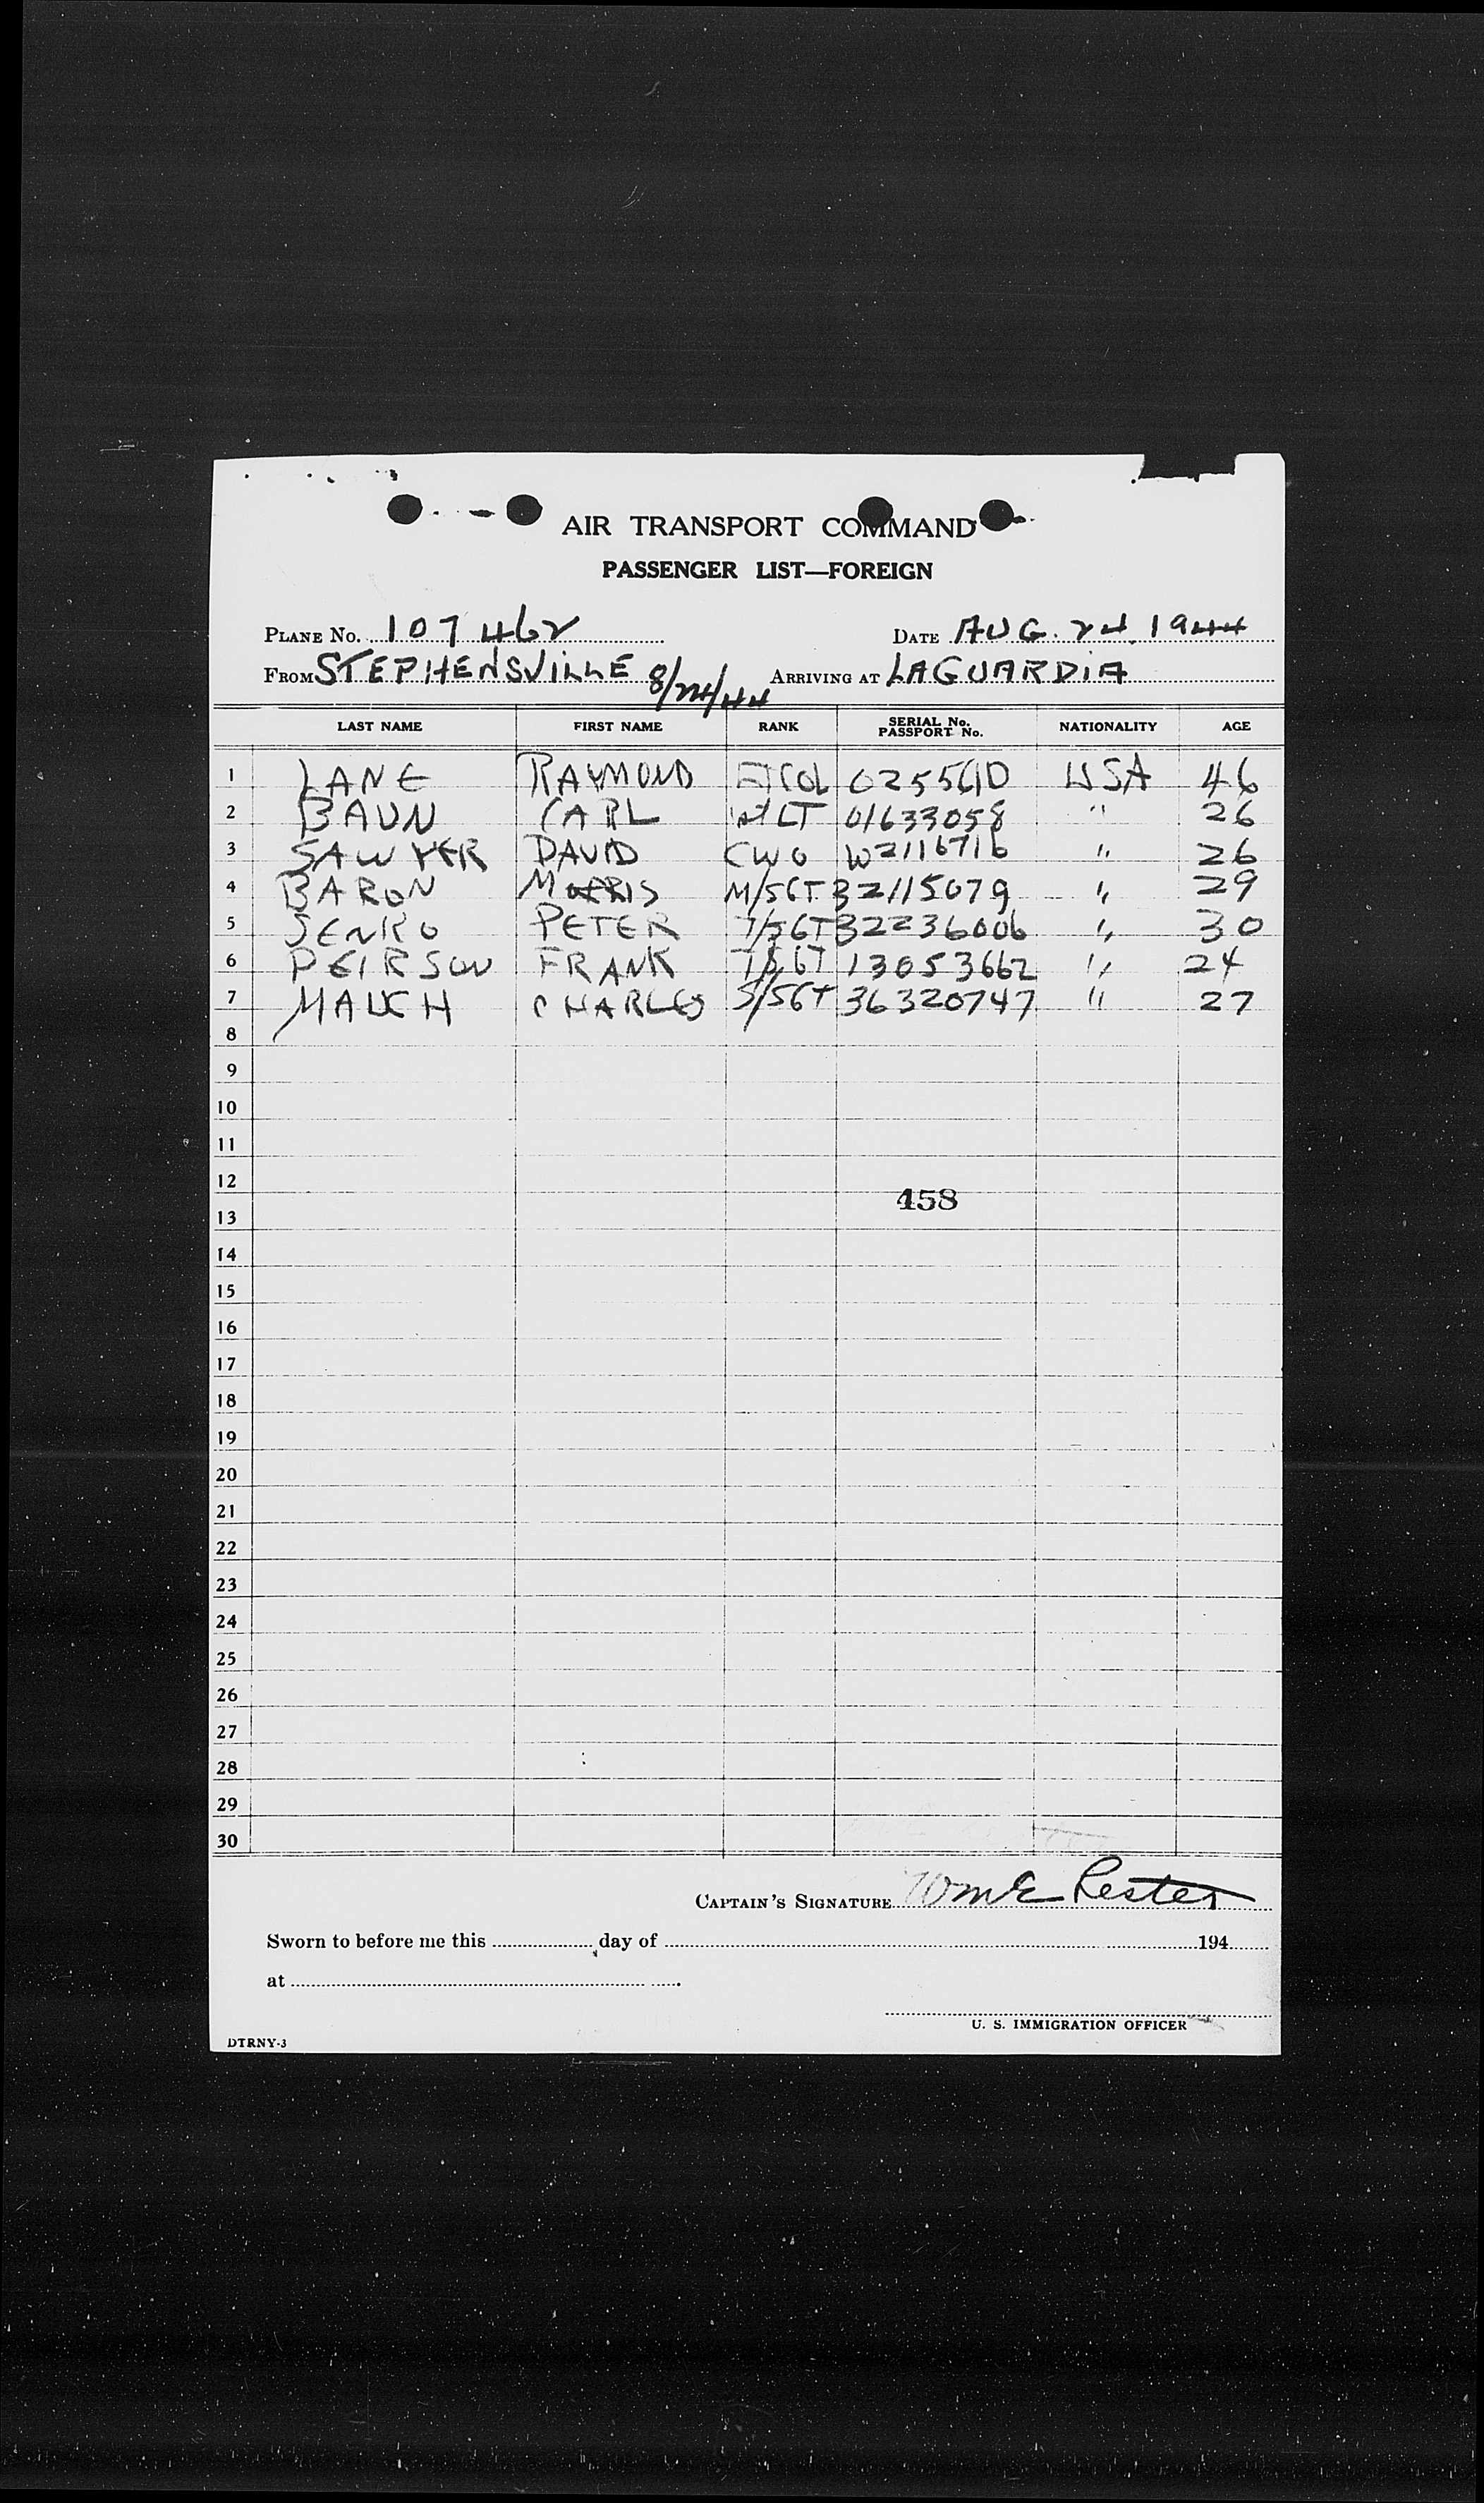 AIR TRANSPORT COMMAND
PASSENGER LIST—FOREIGN
PLANE NO. 107462 DATE AUG. 24, 1944
FROM STEPHENSVILLE 8/24/44 ARRIVING AT LAGUARDIA
LAST NAME FIRST NAME RANK SERIAL No. PASSPORT No. NATIONALITY AGE
1 LANE RAYMOND COL USA 46
2 BAUN CARL LT 01633058 " 26
3 SAWYER DAVID CWO W2116716 " 26
4 BARON MORRIS M/SGT 32115079 " 29
5 SENKO PETER T/SGT 32236006 " 30
6 PEIRSON FRANK T/SGT 13053662 " 24
7 MAUCH CHARLES S/SGT 36320747 " 27
8
9
10
11
12
458
13
14
15
16
17
18
19
20
21
22
23
24
25
26
27
28
29
30
CAPTAIN'S SIGNATURE Wm E Lester
Sworn to before me this day of 194
at
U. S. IMMIGRATION OFFICER
DTRNY-3